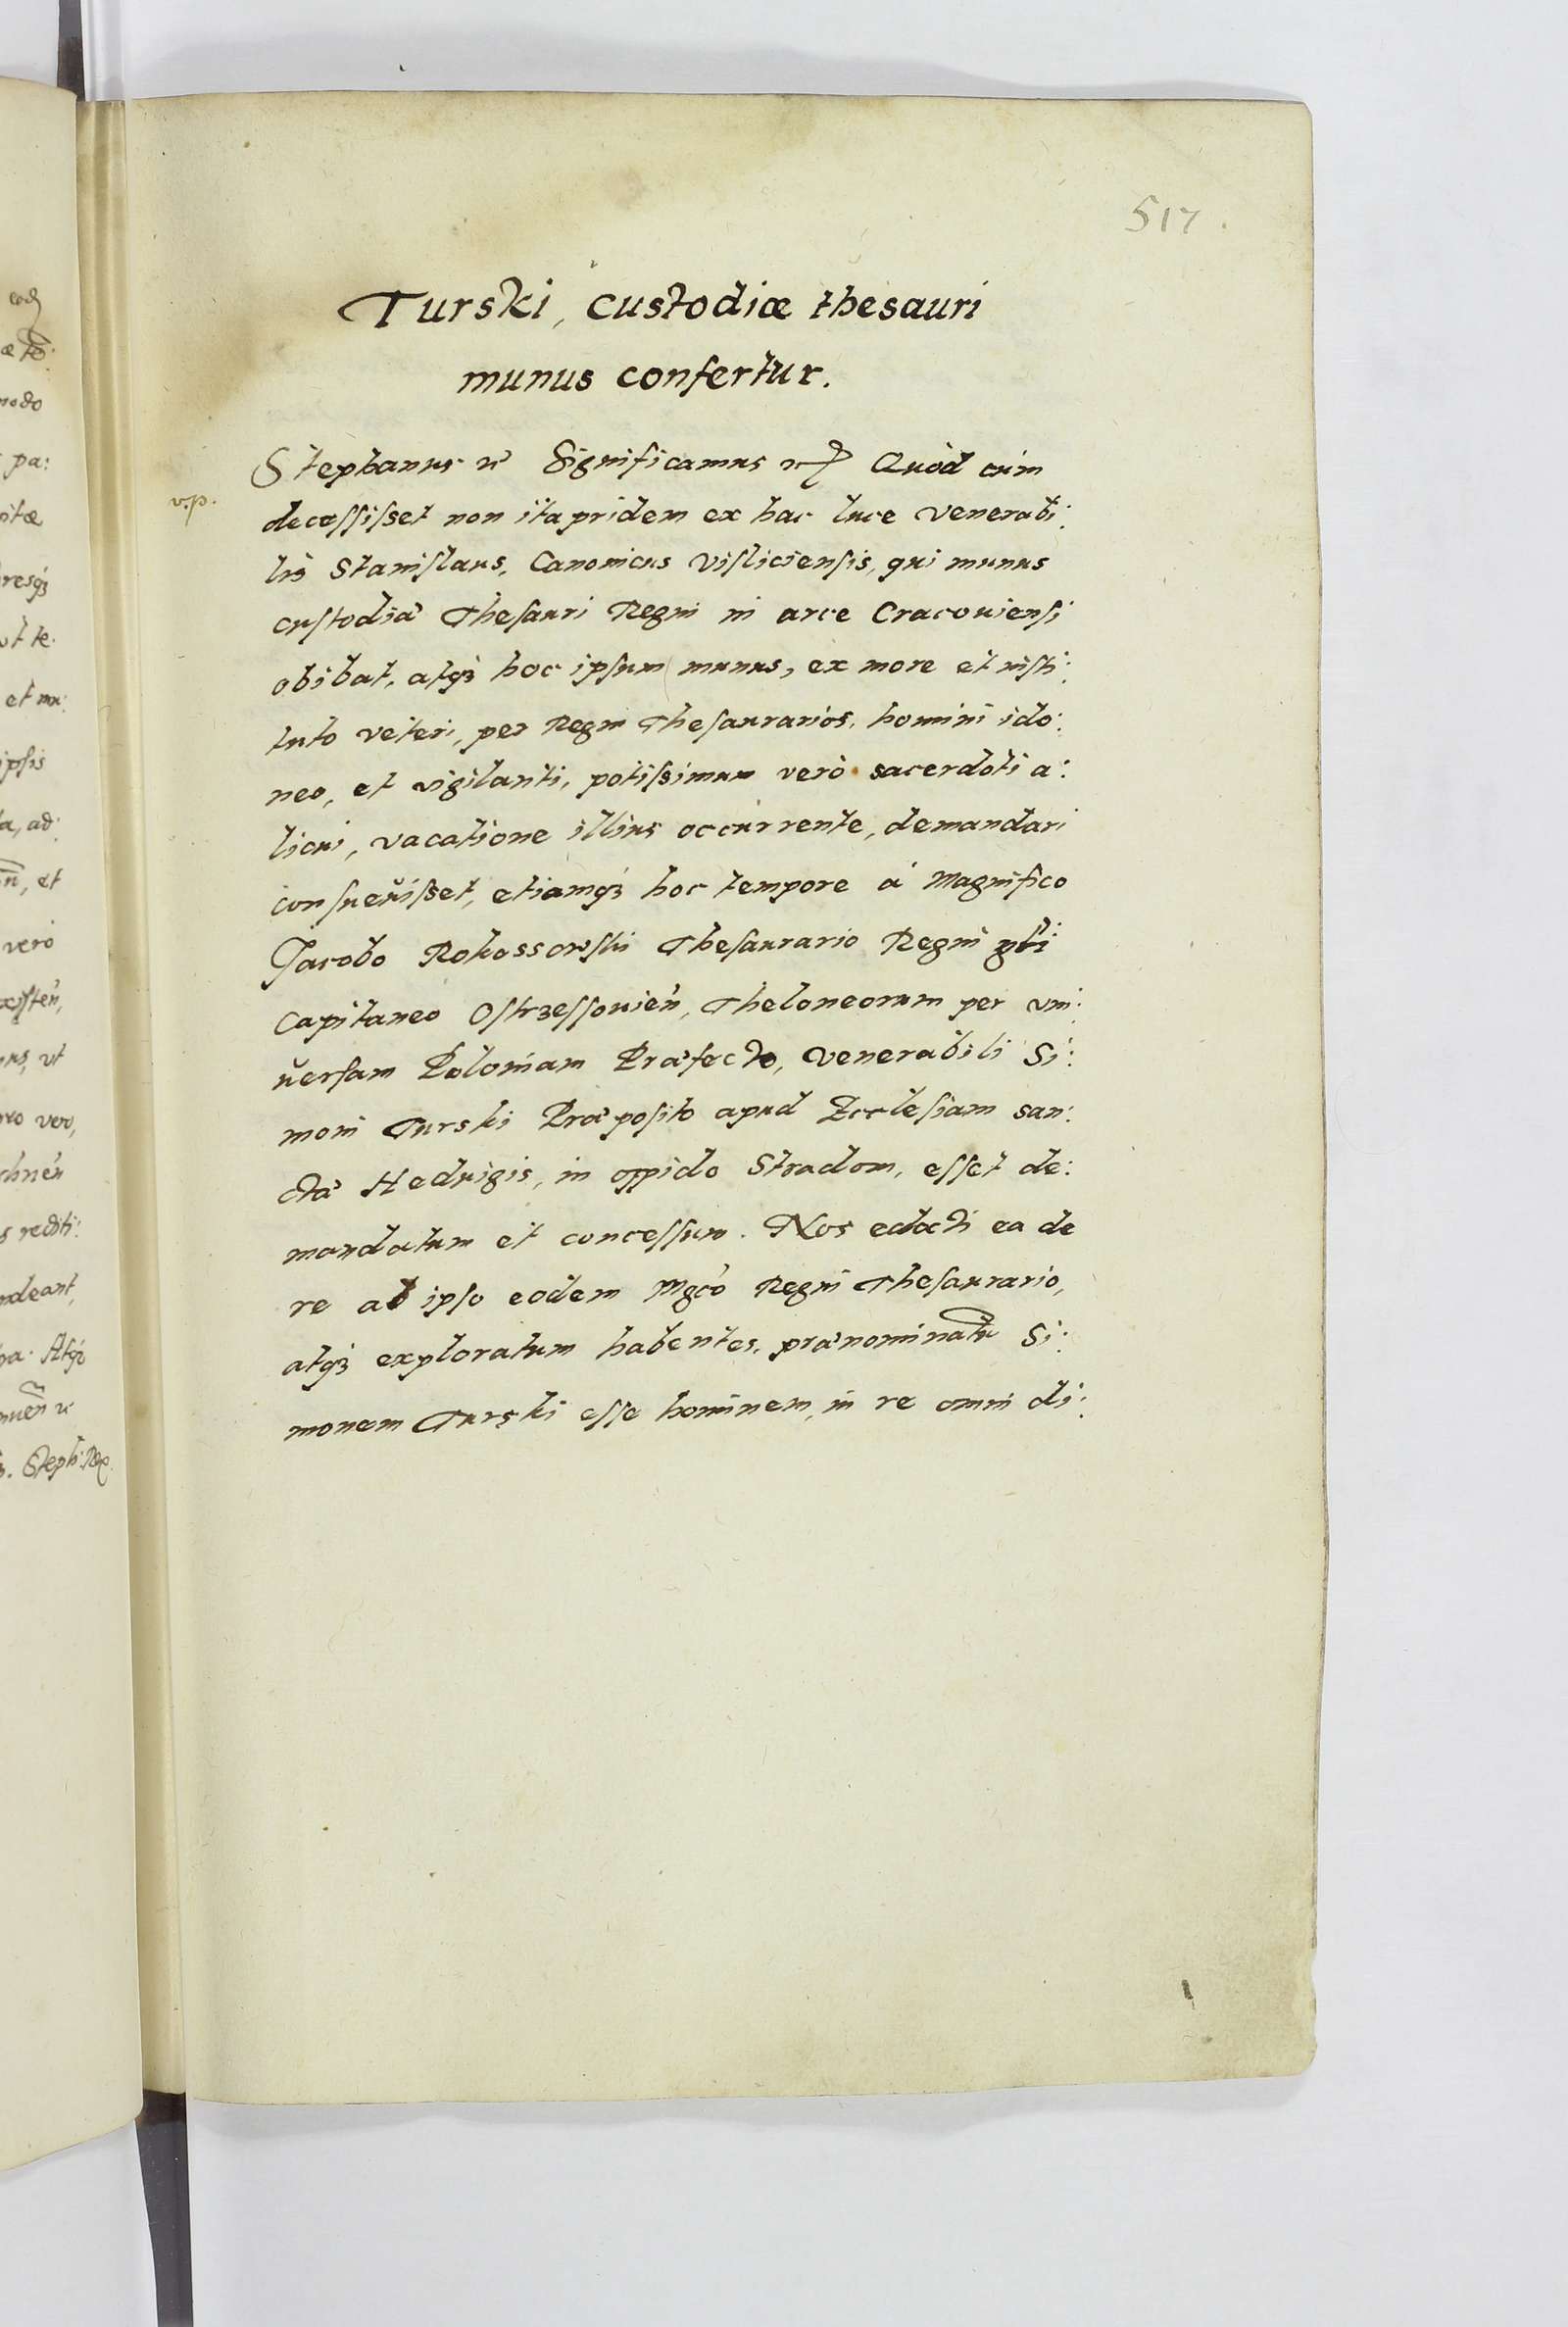 517.
Turski, custodiæ thesauri
munus confertur.
Stephanus &c Significamus &c Quòd cùm
v.p.
decessisset non ita pridem ex hac luce Venerabi:
lis Stanislaus, Canonicus Visliciensis, qui munus
custodiæ Thesauri Regni in arce Cracouiensi
obibat, atq́ hoc ipsum munus, ex more et insti:
tuto veteri, per Regni Thesaurarios, homini ido:
neo, et vigilanti, potissimum verò sacerdoti a:
licui, vacatione illius occurrente, demandari
consueuisset, etiamq́ hoc tempore á Magnifico
Jacobo Rokossowski Thesaurario Regni
Capitaneo Ostrzessouien̄, Theloneorum per vni:
uersam Poloniam Præfecto, Venerabili Si:
moni Turski Præposito apud Ecclesiam san:
ctæ Heduigis, in oppido Stradom, esset de:
mandatum et concessum. Nos edocti ea de
re ab ipso eodem Mgco Regni Thesaurario,
atq́ exploratum habentes, prænominatū Si:
monem Turski esse hominem, in re omni di:
modo
pa:
itæ
resq́
vt te.
et mu:
ipsis
ta, ad:
n̄, et
vero
xisten̄,
us, vt
ver,
s rediti:
deant,
Atq́
Steph: Rex